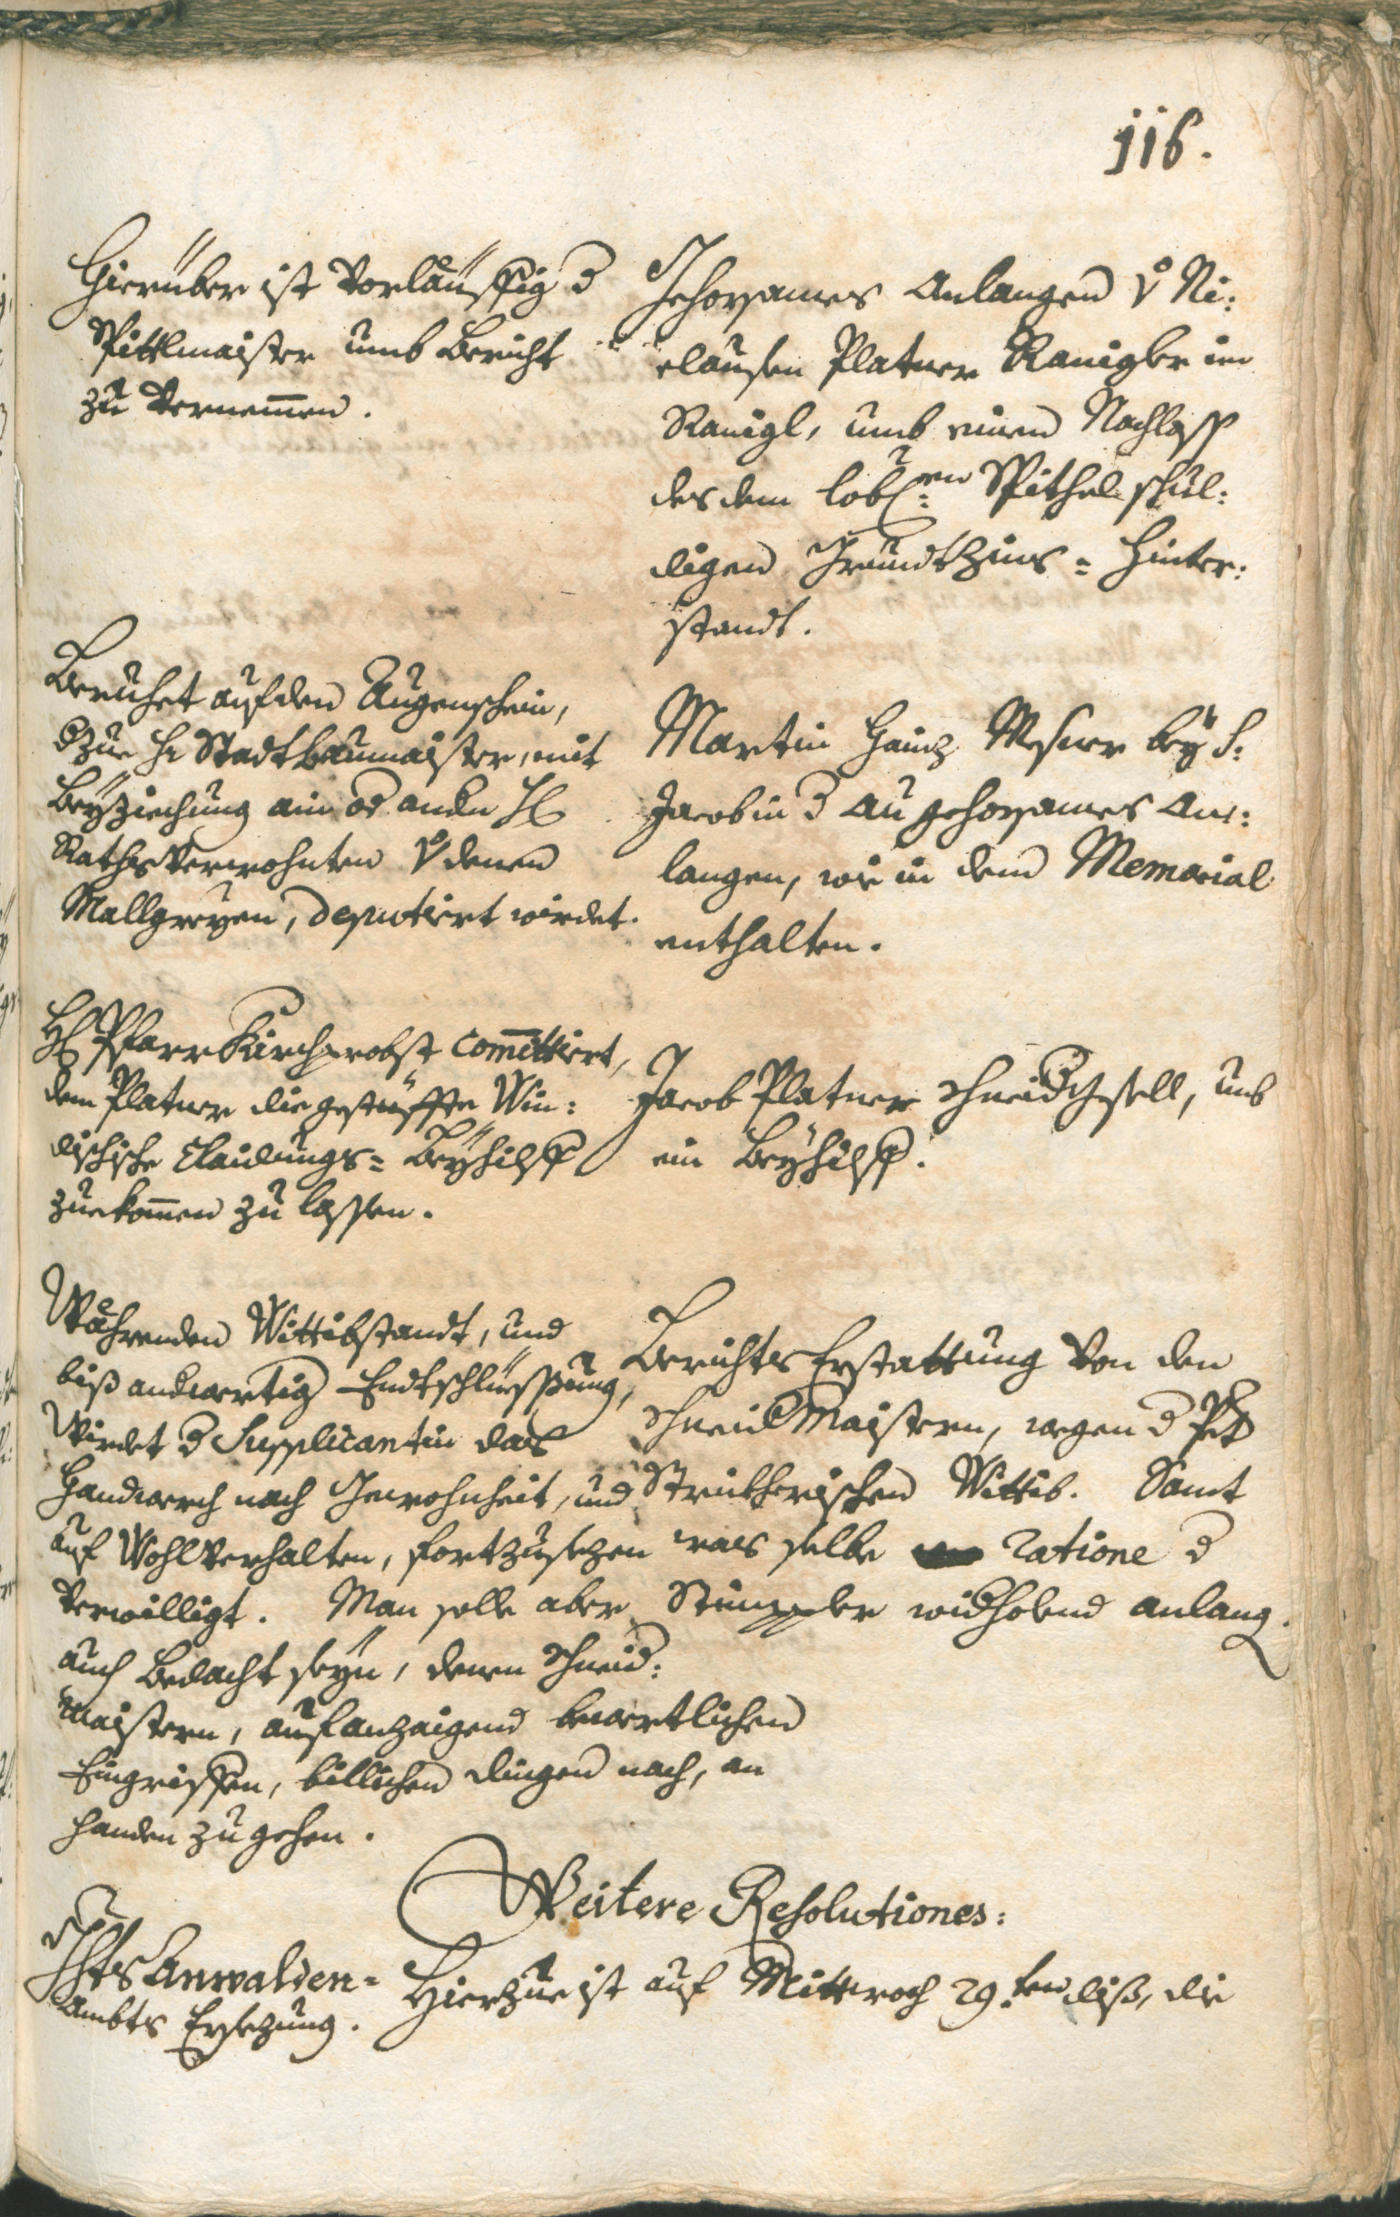 116.
Hierüber ist vorläuffig d
Spittlmaister umb Bericht
zu vernemmen.
Gehorsames Anlangen v Ni:
clausen Platner Ranigler im
Ranigl, umb einen Nachlass
des dem lobl:en Spithal schul:
digen Grundtzins= Hinter:
standt.
Beruhet auf den Augenschein,
dzue H Stadtbaumaister, mit
Beyziehung ain od anden H
Rathsverwohnten v denen
Mallgreyen, deputiert wirdet.
Martin Hainz Mesner bey S:
Jacob in d Au gehorsames An:
langen, wie in dem Memorial
enthalten.
H Pfarrkirchprobst committiert,
dem Platner die gestüffte Win:
dischische Claidungs= Beyhilff
zuekommen zu lassen.
Jacob Platner Schneidgsell, umb
ein Beyhilff.
Währenden Wittibstandt, und
biß andwertig Endtschlüessung,
wirdet d Supplicantin das
Handwerch nach Gewohnheit, und
auf Wohlverhalten, fortzusezen
verwilligt. Man solle aber
auch bedacht seyn, denen Schneid:
maistern, auf anzaigend beweertlichen
Eingriffen, billichen dingen nach, an
handen zu gehen.
Berichts Erstattung von den
Schneidmaistern, wegen d Pet
Streitherischen Wittib. Samt
was selbe ratione d
Stimppler widholend anlang.
Weitere Resolutiones:
Anwalden=
Ambts Ersezung.
Hierzue ist auf Mittwoch 29.ten diß, die